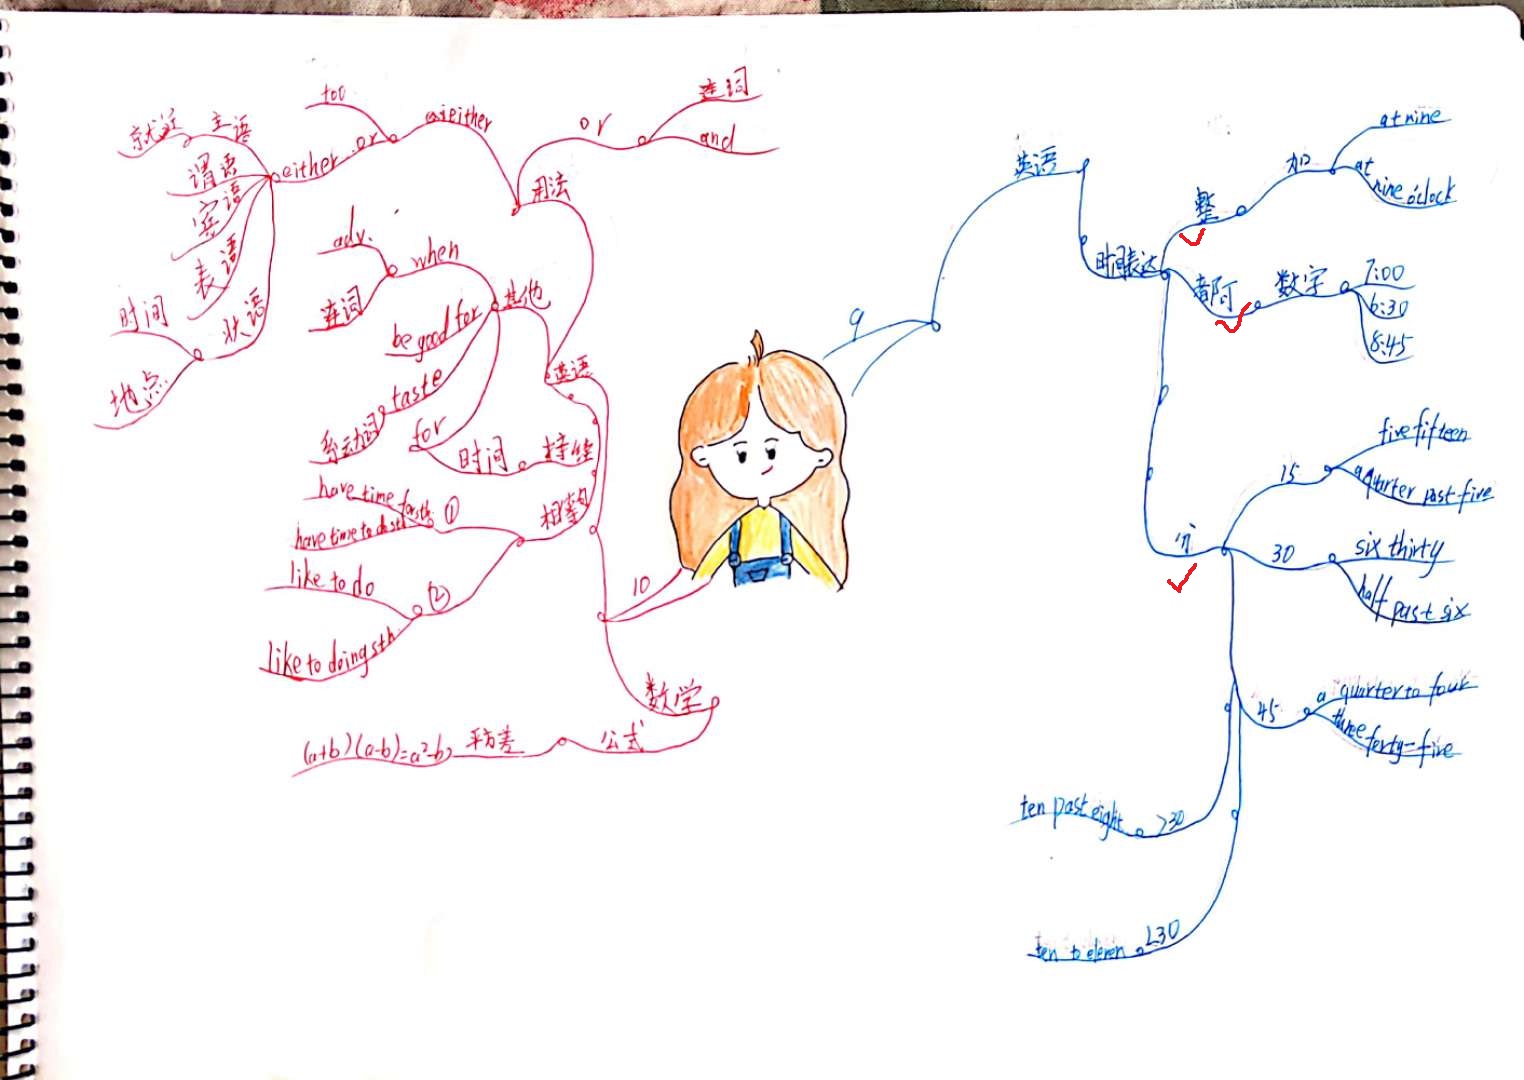 too
either
or
连词
and
用法
either or
就近
主语
谓语
宾语
表语
状语
时间
地点
adv.
when
连词
其他
be good for
taste
系动词
for
时间
持续
英语
相等句
have time for sth
①
have time to do sth
like to do
②
like to doing sth
10
数学
公式
平方差
(a+b)(a-b)=a²-b²
9
英语
时间表达
整
加
at nine
at
nine o'clock
都可
数字
7:00
6:30
8:45
分
15
five fifteen
a quarter past five
30
six thirty
half past six
45
a quarter to four
three forty-five
ten past eight
>30
ten to eleven